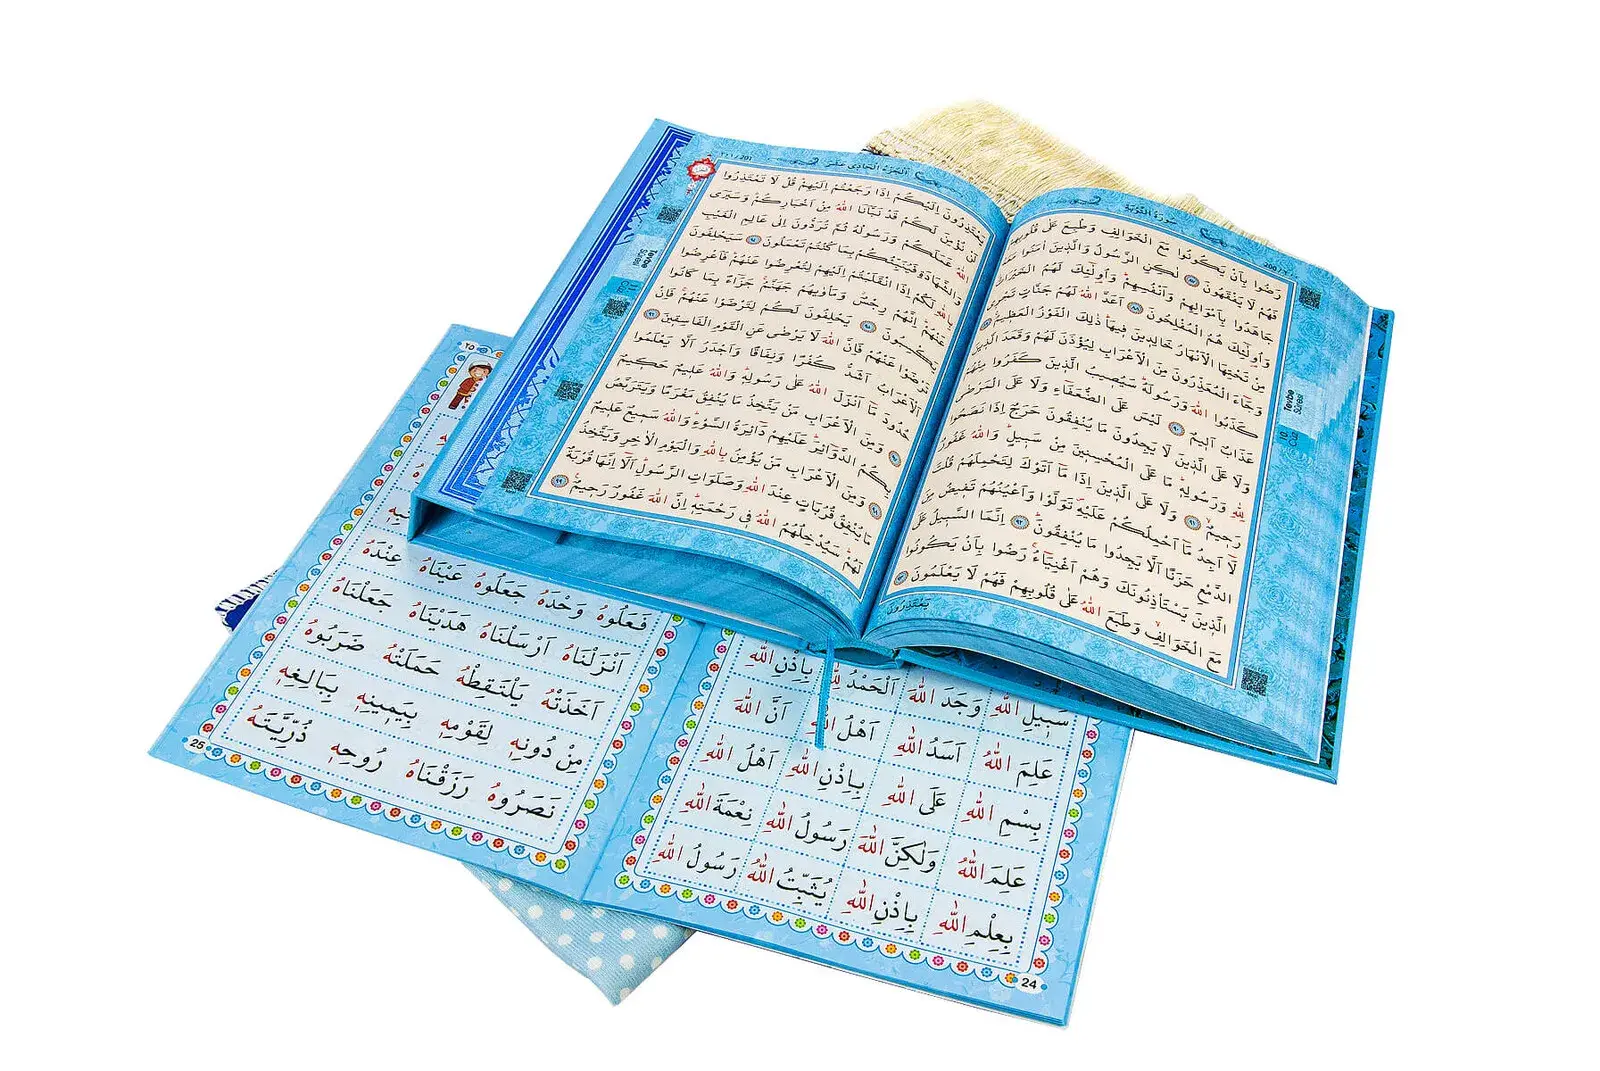 سُورَةُ التَّوْبَةِ
200
رَضُوا بِاَنْ يَكُونُوا مَعَ الْخَوَالِفِ وَطُبِعَ عَلٰى قُلُوبِهِمْ
فَهُمْ لَا يَفْقَهُونَ ﴿٨٧﴾ لٰكِنِ الرَّسُولُ وَالَّذِينَ اٰمَنُوا
جَاهَدُوا بِاَمْوَالِهِمْ وَاَنْفُسِهِمْ وَاُولٰٓئِكَ لَهُمُ الْخَيْرَاتُ
وَاُولٰٓئِكَ هُمُ الْمُفْلِحُونَ ﴿٨٨﴾ اَعَدَّ اللّٰهُ لَهُمْ جَنَّاتٍ تَجْرِي
مِنْ تَحْتِهَا الْاَنْهَارُ خَالِدِينَ فِيهَا ذٰلِكَ الْفَوْزُ الْعَظِيمُ ﴿٨٩﴾
وَجَٓاءَ الْمُعَذِّرُونَ مِنَ الْاَعْرَابِ لِيُؤْذَنَ لَهُمْ وَقَعَدَ الَّذِينَ
كَذَبُوا اللّٰهَ وَرَسُولَهُ سَيُصِيبُ الَّذِينَ كَفَرُوا مِنْهُمْ
عَذَابٌ اَلِيمٌ ﴿٩٠﴾ لَيْسَ عَلَى الضُّعَفَٓاءِ وَلَا عَلَى الْمَرْضٰى
وَلَا عَلَى الَّذِينَ لَا يَجِدُونَ مَا يُنْفِقُونَ حَرَجٌ اِذَا نَصَحُوا
لِلّٰهِ وَرَسُولِهِ مَا عَلَى الْمُحْسِنِينَ مِنْ سَبِيلٍ وَاللّٰهُ غَفُورٌ
رَحِيمٌ ﴿٩١﴾ وَلَا عَلَى الَّذِينَ اِذَا مَٓا اَتَوْكَ لِتَحْمِلَهُمْ قُلْتَ
لَٓا اَجِدُ مَٓا اَحْمِلُكُمْ عَلَيْهِ تَوَلَّوْا وَاَعْيُنُهُمْ تَفِيضُ مِنَ
الدَّمْعِ حَزَنًا اَلَّا يَجِدُوا مَا يُنْفِقُونَ ﴿٩٢﴾ اِنَّمَا السَّبِيلُ عَلَى
الَّذِينَ يَسْتَأْذِنُونَكَ وَهُمْ اَغْنِيَٓاءُ رَضُوا بِاَنْ يَكُونُوا
مَعَ الْخَوَالِفِ وَطَبَعَ اللّٰهُ عَلٰى قُلُوبِهِمْ فَهُمْ لَا يَعْلَمُونَ ﴿٩٣﴾
يَعْتَذِرُونَ
Tevbe
Sûresi
10
Cüz
اَلْجُزْءُ الْحَادِي عَشَرَ
٢٠١ / 201
يَعْتَذِرُونَ اِلَيْكُمْ اِذَا رَجَعْتُمْ اِلَيْهِمْ قُلْ لَا تَعْتَذِرُوا
لَنْ نُؤْمِنَ لَكُمْ قَدْ نَبَّاَنَا اللّٰهُ مِنْ اَخْبَارِكُمْ وَسَيَرَى
اللّٰهُ عَمَلَكُمْ وَرَسُولُهُ ثُمَّ تُرَدُّونَ اِلٰى عَالِمِ الْغَيْبِ
وَالشَّهَادَةِ فَيُنَبِّئُكُمْ بِمَا كُنْتُمْ تَعْمَلُونَ ﴿٩٤﴾ سَيَحْلِفُونَ
بِاللّٰهِ لَكُمْ اِذَا انْقَلَبْتُمْ اِلَيْهِمْ لِتُعْرِضُوا عَنْهُمْ فَاَعْرِضُوا
عَنْهُمْ اِنَّهُمْ رِجْسٌ وَمَأْوٰيهُمْ جَهَنَّمُ جَزَٓاءً بِمَا كَانُوا
يَكْسِبُونَ ﴿٩٥﴾ يَحْلِفُونَ لَكُمْ لِتَرْضَوْا عَنْهُمْ فَاِنْ
تَرْضَوْا عَنْهُمْ فَاِنَّ اللّٰهَ لَا يَرْضٰى عَنِ الْقَوْمِ الْفَاسِقِينَ ﴿٩٦﴾
اَلْاَعْرَابُ اَشَدُّ كُفْرًا وَنِفَاقًا وَاَجْدَرُ اَلَّا يَعْلَمُوا
حُدُودَ مَٓا اَنْزَلَ اللّٰهُ عَلٰى رَسُولِهِ وَاللّٰهُ عَلِيمٌ حَكِيمٌ
﴿٩٧﴾ وَمِنَ الْاَعْرَابِ مَنْ يَتَّخِذُ مَا يُنْفِقُ مَغْرَمًا وَيَتَرَبَّصُ
بِكُمُ الدَّوَٓائِرَ عَلَيْهِمْ دَٓائِرَةُ السَّوْءِ وَاللّٰهُ سَمِيعٌ عَلِيمٌ
﴿٩٨﴾ وَمِنَ الْاَعْرَابِ مَنْ يُؤْمِنُ بِاللّٰهِ وَالْيَوْمِ الْاٰخِرِ وَيَتَّخِذُ
مَا يُنْفِقُ قُرُبَاتٍ عِنْدَ اللّٰهِ وَصَلَوَاتِ الرَّسُولِ اَلَٓا اِنَّهَا قُرْبَةٌ
لَهُمْ سَيُدْخِلُهُمُ اللّٰهُ فِي رَحْمَتِهِ اِنَّ اللّٰهَ غَفُورٌ رَحِيمٌ ﴿٩٩﴾
Tevbe
Sûresi
11
Cüz
سَبِيلِ اللّٰهِ وَجَدَ اللّٰهَ اَلْحَمْدُ لِلّٰهِ بِاِذْنِ اللّٰهِ
عَلِمَ اللّٰهُ اَسَدُ اللّٰهِ اَهْلُ اللّٰهِ اَنَّ اللّٰهَ
بِسْمِ اللّٰهِ عَلَى اللّٰهِ بِاِذْنِ اللّٰهِ اَهْلُ اللّٰهِ
عَلِمَ اللّٰهُ وَلٰكِنَّ اللّٰهَ رَسُولُ اللّٰهِ نِعْمَةَ اللّٰهِ
بِعِلْمِ اللّٰهِ بِاِذْنِ اللّٰهِ يُثَبِّتُ اللّٰهُ رَسُولُ اللّٰهِ
24
٢٥
فَعَلُوهُ وَحْدَهُ جَعَلُوهُ عَيْنَاهُ عِنْدَهُ
اَنْزَلْنَاهُ اَرْسَلْنَاهُ هَدَيْنَاهُ جَعَلْنَاهُ
اَخَذَتْهُ يَلْتَقِطْهُ حَمَلَتْهُ ضَرَبُوهُ
مِنْ دُونِهِ لِقَوْمِهِ بِيَمِينِهِ بِبَالِغِهِ
نَصَرُوهُ رَزَقْنَاهُ رُوحِهِ ذُرِّيَّتَهُ
25